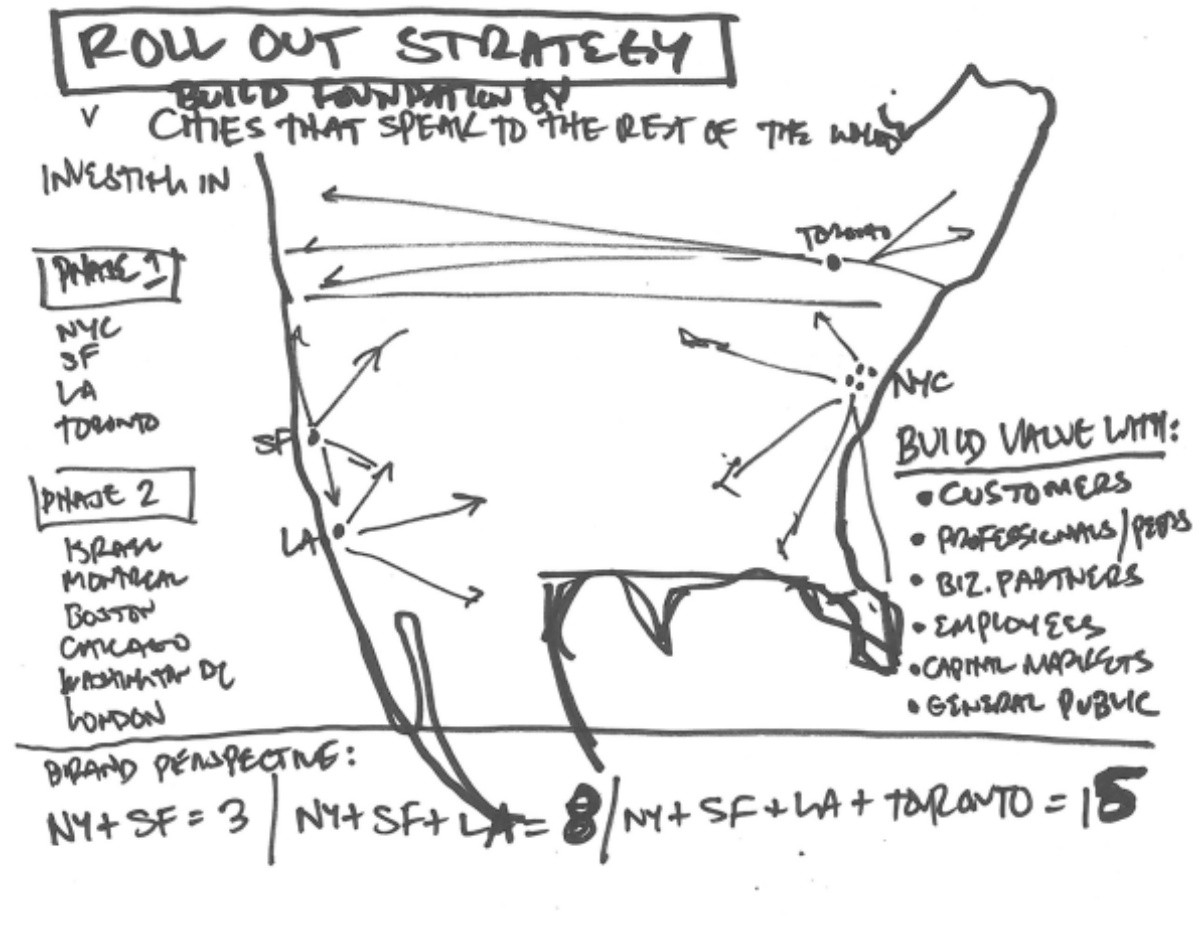 ROLL OUT STRATEGY
BUILD FOUNDATION BY
CITIES THAT SPEAK TO THE REST OF THE WORLD
INVESTING IN
PHASE 1
NYC
SF
LA
TORONTO
PHASE 2
ISRAEL
MONTREAL
BOSTON
CHICAGO
WASHINGTON DC
LONDON
TORONTO
NYC
SF
LA
BUILD VALUE WITH:
• CUSTOMERS
• PROFESSIONALS/PEERS
• BIZ. PARTNERS
• EMPLOYEES
• CAPITAL MARKETS
• GENERAL PUBLIC
BRAND PERSPECTIVE:
NY + SF = 3 | NY + SF + LA = 8 | NY + SF + LA + TORONTO = 15